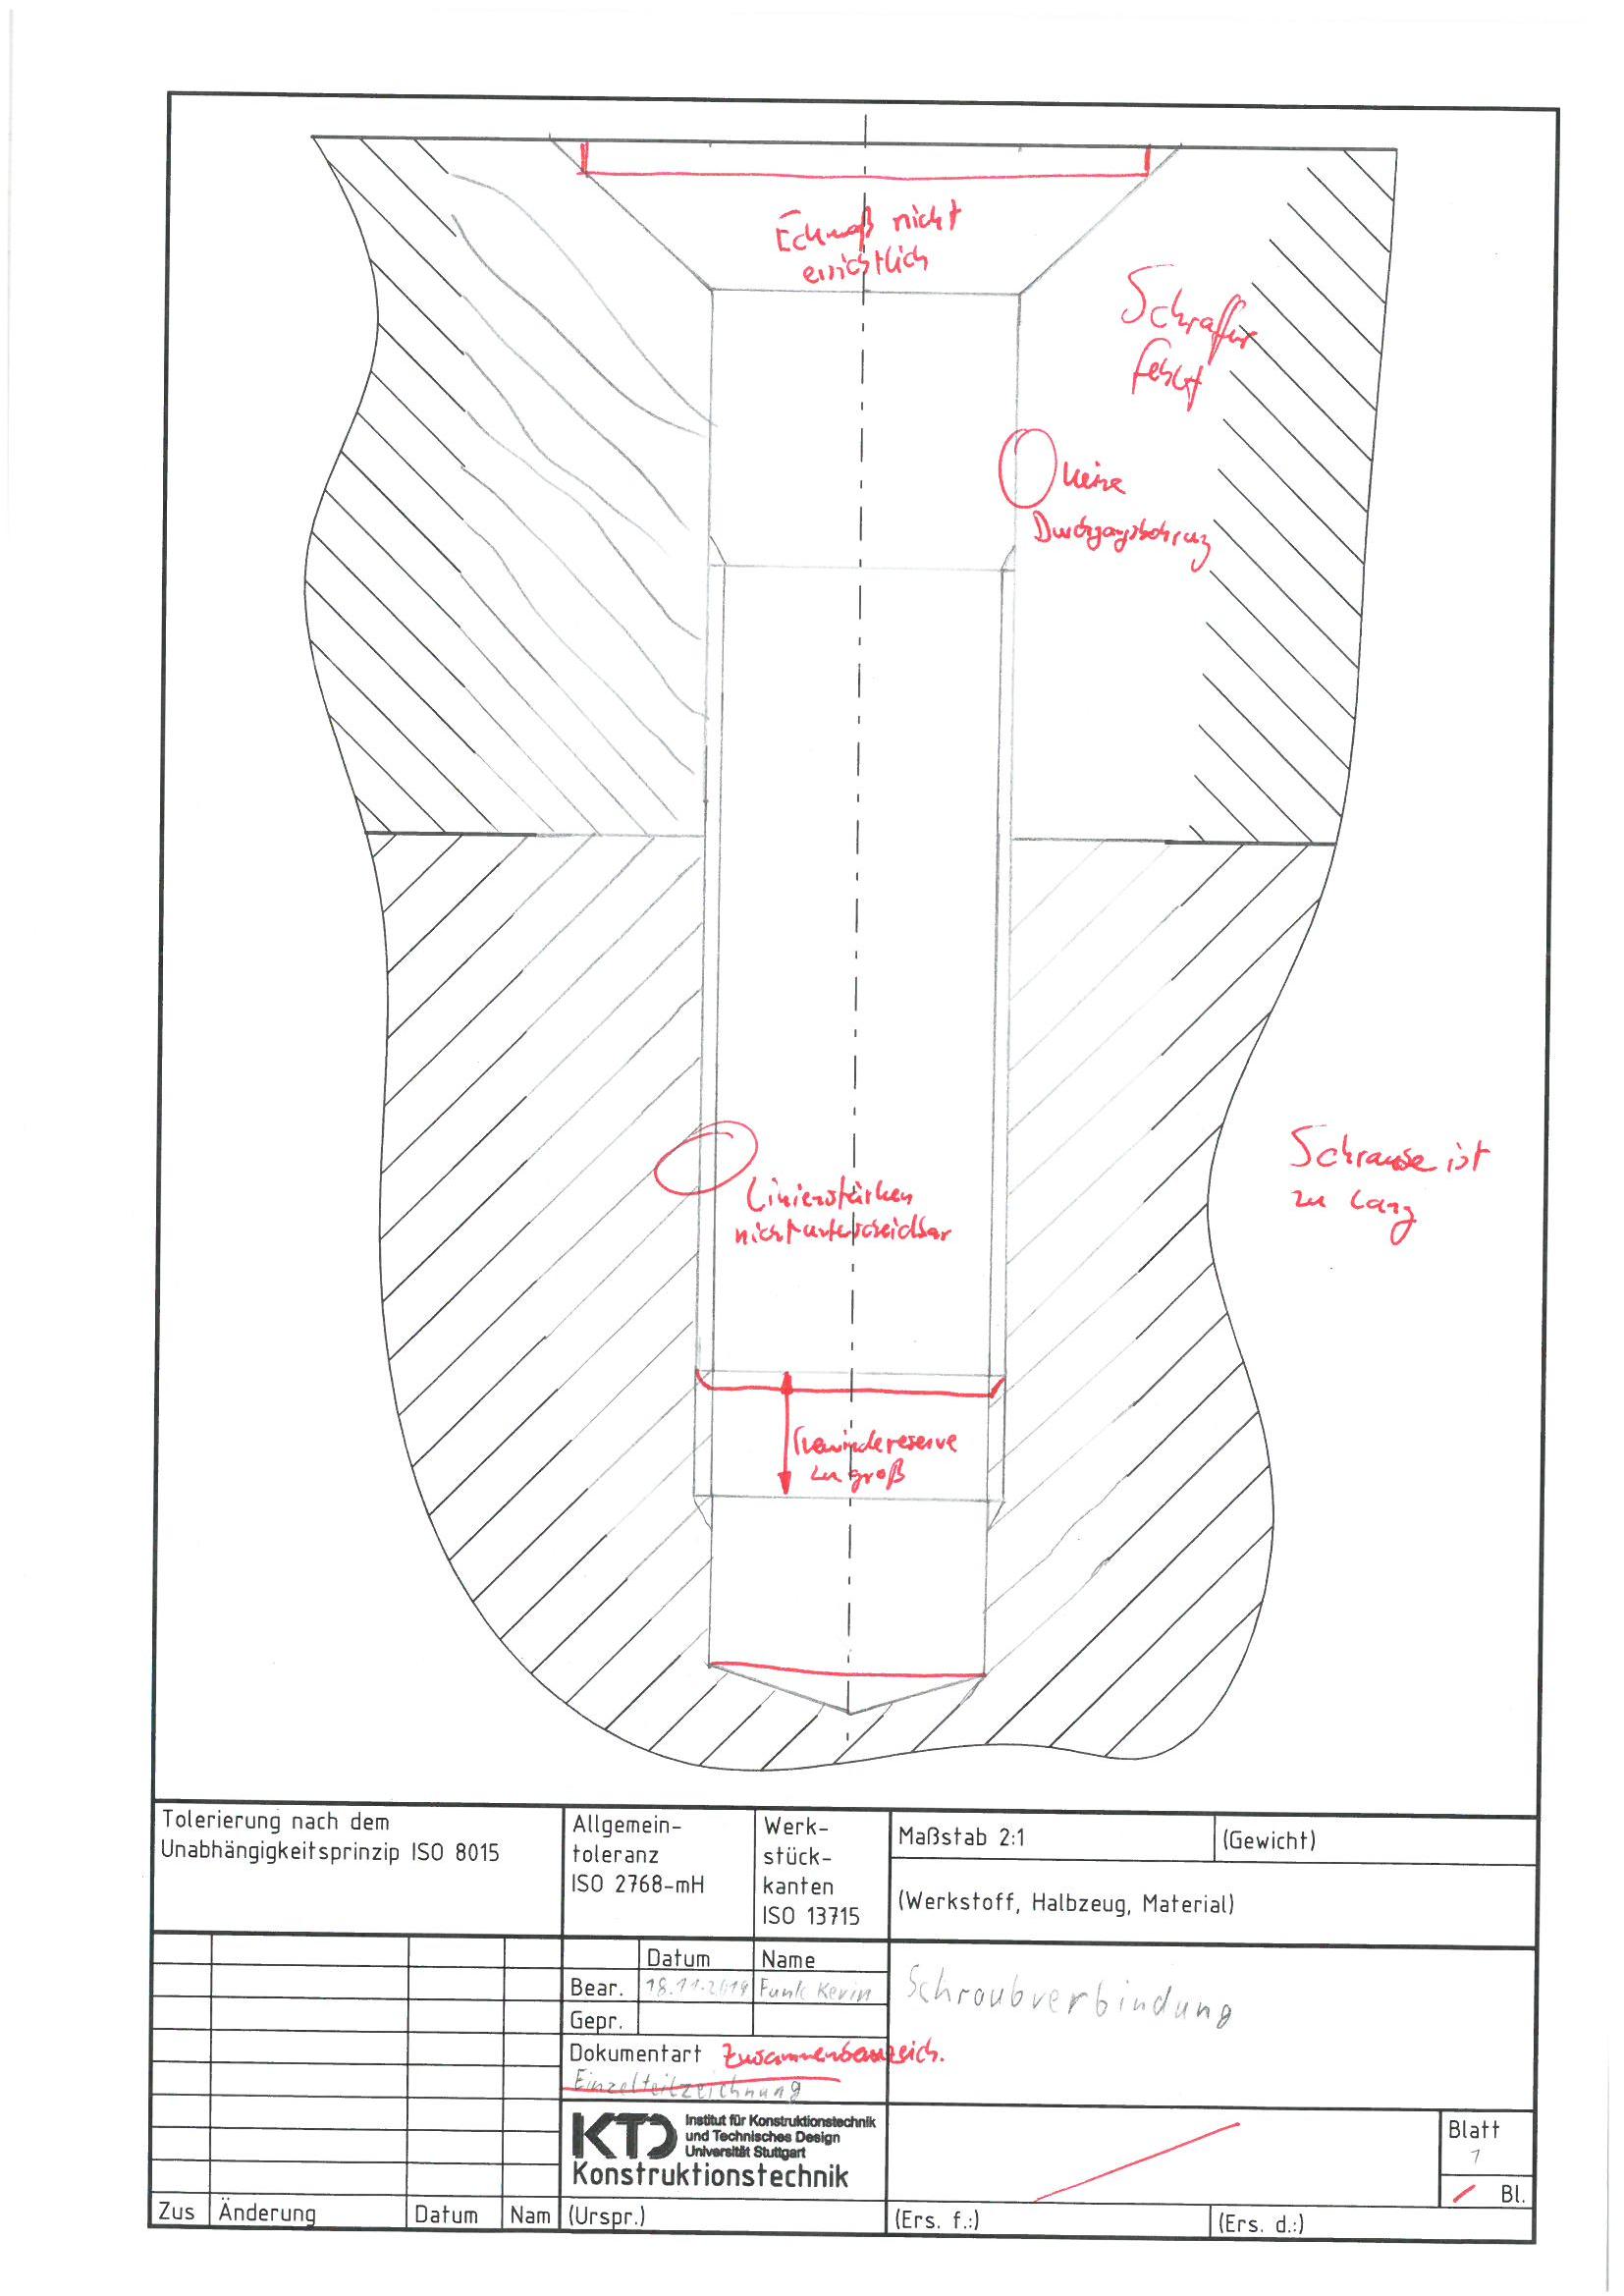 Eckmaß nicht
ersichtlich
Schraffur
fehlt
keine
Durchgangsbohrung
Schraube ist
zu lang
Linienstärken
nicht unterscheidbar
Gewindereserve
zu groß
Tolerierung nach dem
Unabhängigkeitsprinzip ISO 8015
Allgemein-
toleranz
ISO 2768-mH
Werk-
stück-
kanten
ISO 13715
Maßstab 2:1
(Gewicht)
(Werkstoff, Halbzeug, Material)
Datum Name
Bear. 18.11.2019 Funk Kevin
Gepr.
Schraubverbindung
Dokumentart Zusammenbauzeich.
Einzelteilzeichnung
KTD Institut für Konstruktionstechnik
und Technisches Design
Universität Stuttgart
Konstruktionstechnik
Blatt
1
Bl.
Zus Änderung Datum Nam (Urspr.) (Ers. f.:) (Ers. d.:)